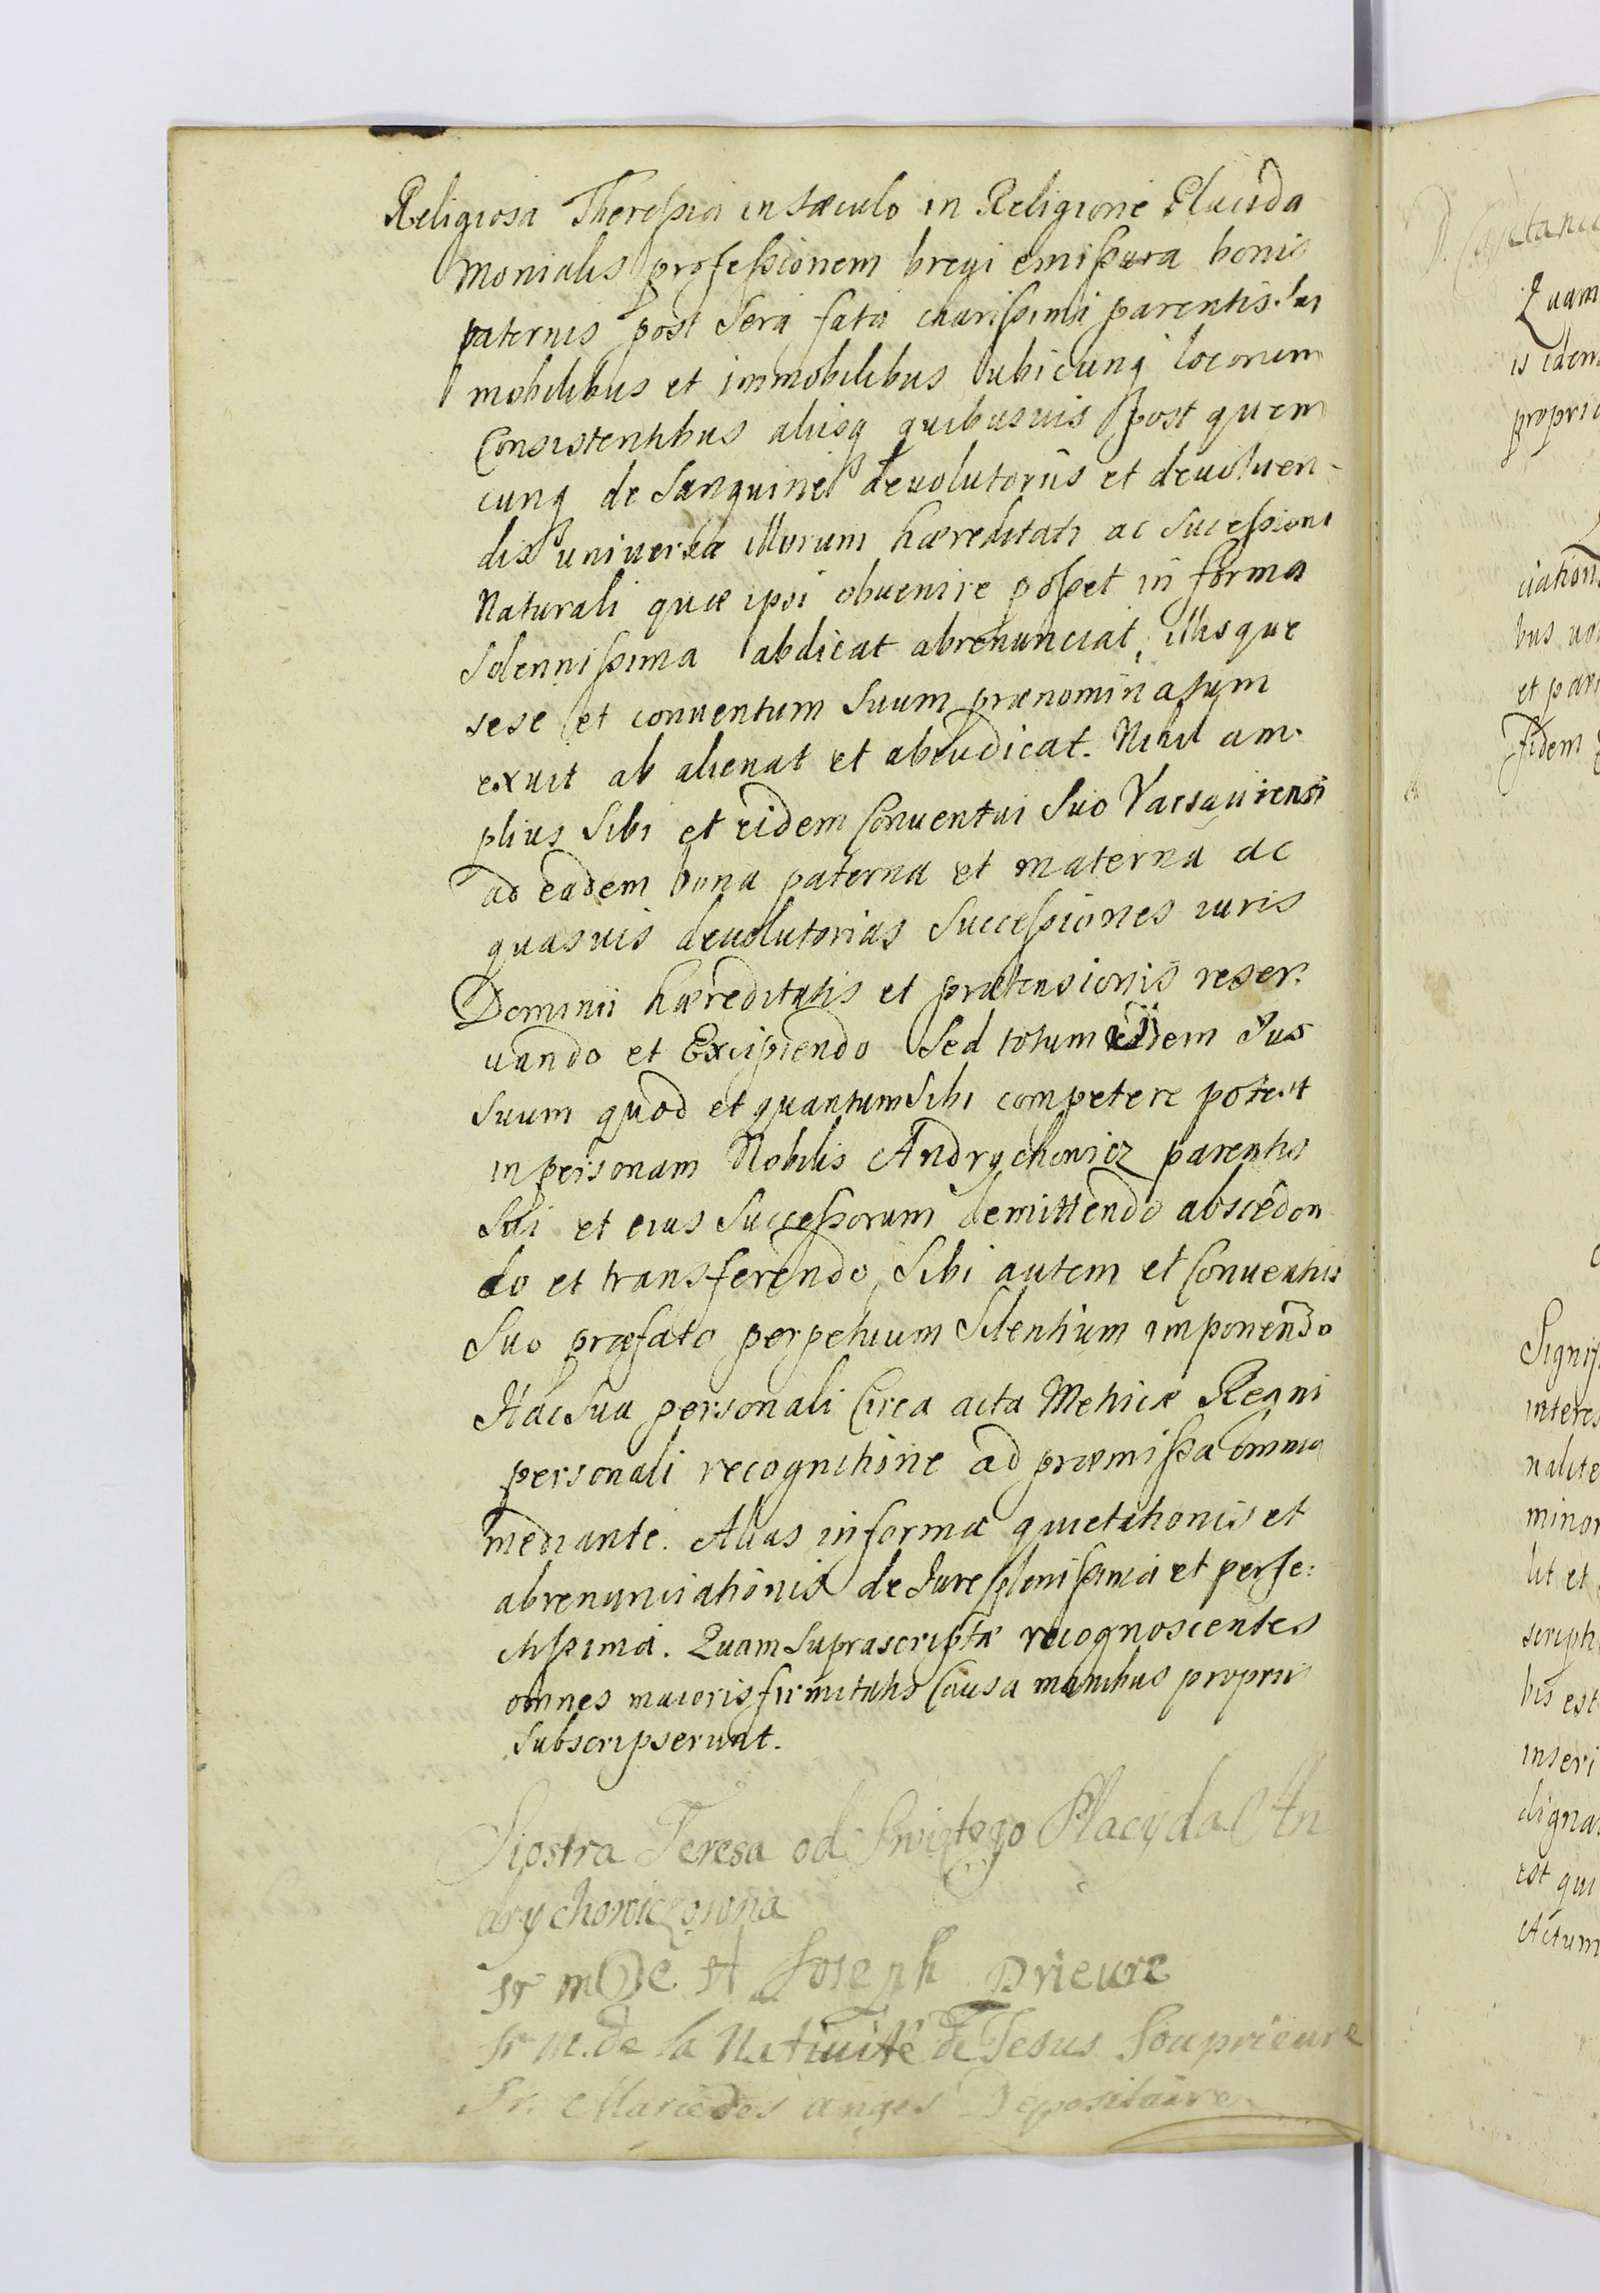 Religiosa Theressia in sæculo in Religione Placida
Monialis professionem brevi emissura bonis
paternis post sera fata charissimi parentis sui
mobilibus et immobilibus ubicunq locorum
Consistentibus aliisq quibusvis post quem
cunq de sanguine devolutoriis et devoluen-
dis universæ illorum hæreditati ac sucessioni
Naturali quæ ipsi obuenire posset in forma
solennissima abdicat abrenunciat, illisque
sese et conuentum suum prænominatum
exuit ab alienat et abiudicat. Nihil am-
plius sibi et eidem Conuentui suo Varsauiensi
ad eadem bona paterna et materna ac
quasuis deuolutorias successiones iuris
Dominii hæreditatis et prætensionis reser-
uando et Excipiendo sed totum eidem Jus
suum quod et quantum sibi competere potest
in personam Nobilis Andrychowicz parentis
sui et eius successorum demittendo abscedon
do et transferendo, sibi autem et Conuentui
suo præfato perpetuum silentium imponendo
Hac sua personali Circa acta Metricæ Regni
personali recognitione ad præmissa omnia
mediante. Alias in forma quietationis et
abrenunciationis de Jure plenissima et perfe:
ctissima. Quam suprascriptæ recognoscentes
omnes maioris firmitatis Causa manibus propriis
subscripserunt.
Siostra Teresa od Swiętego Placyda An
drychowiczowna
sr m De st Joseph Prieure
sr m. de la Natiuité de Jesus souprieure
Sr. Marie des anges Depositaire
D. Capitanei
Quam
is idem
propria
ciation
bus
et par
fidem
Signif
interes
nalite
minor
lit et
script
bis est
inseri
digna
est qui
Actum